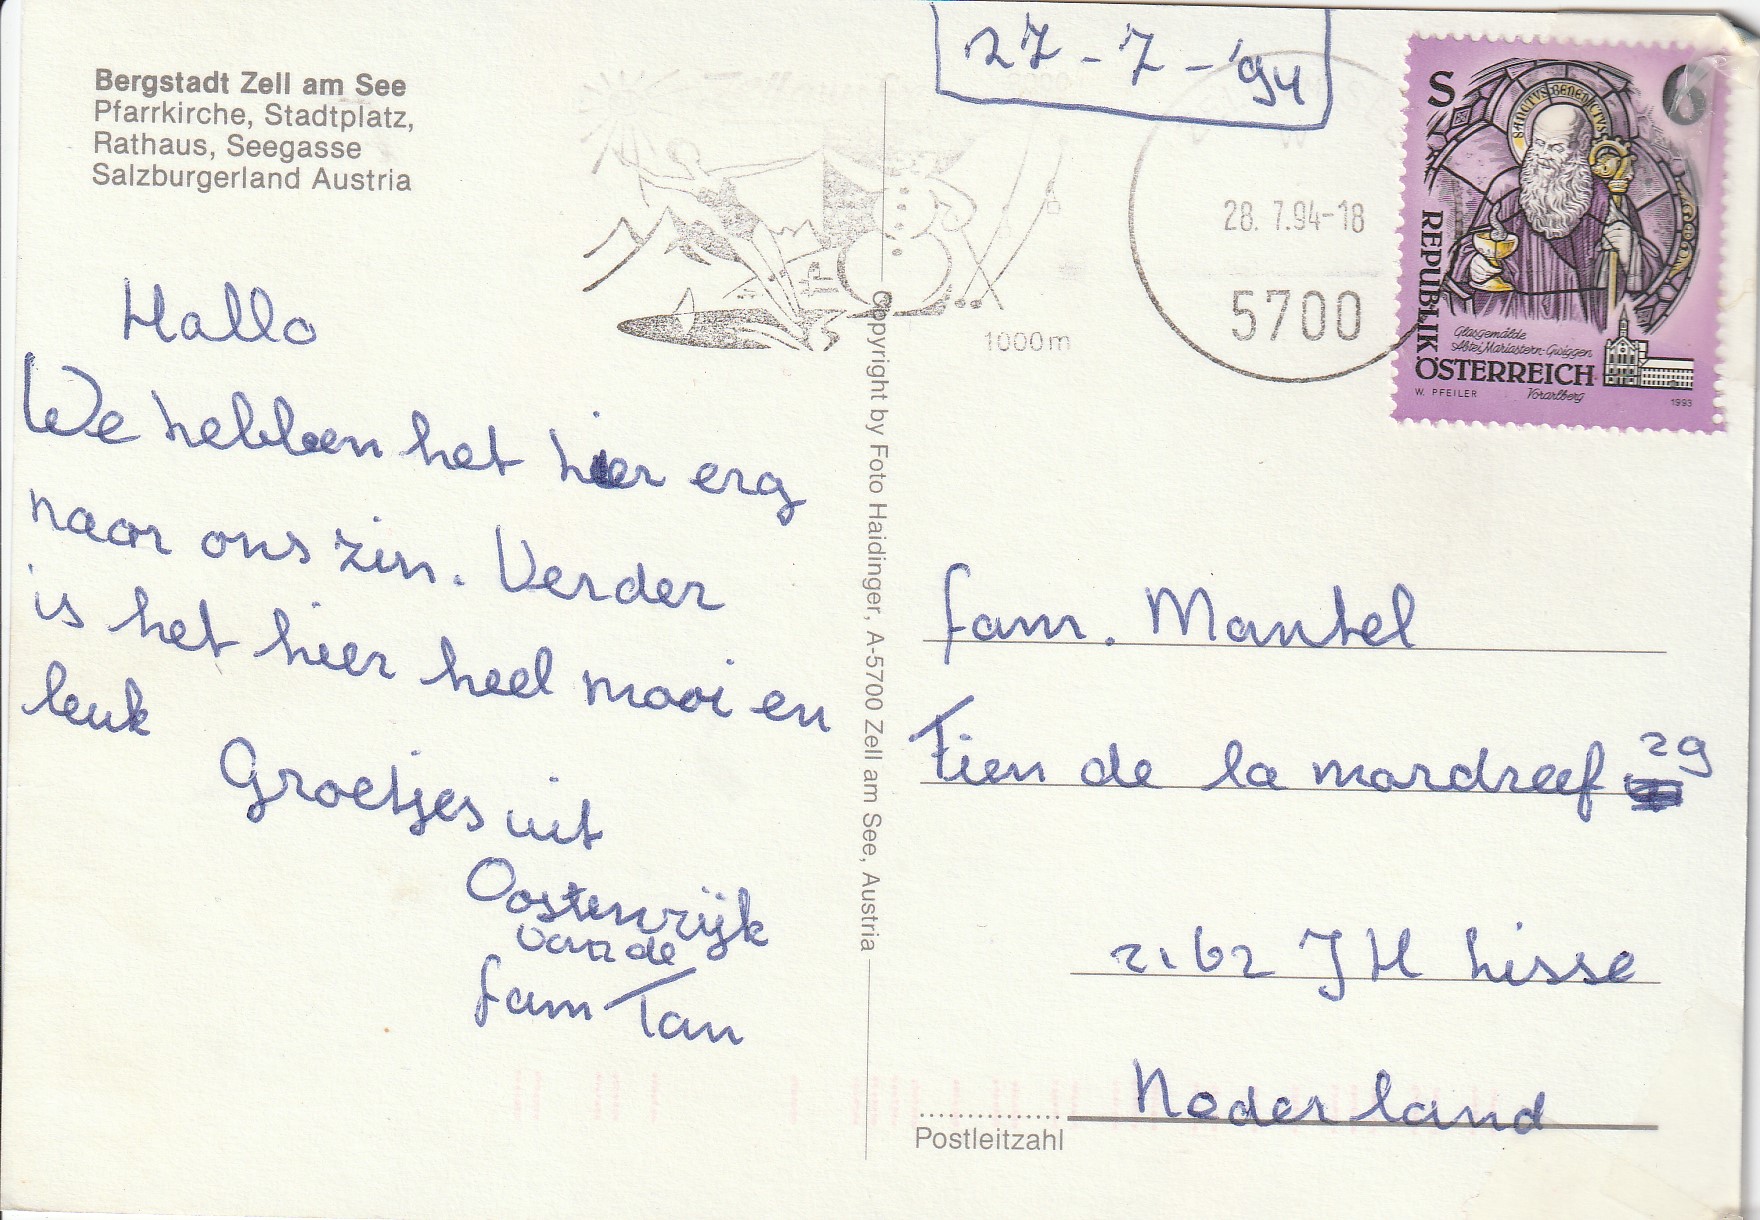 27-7-'94
Bergstadt Zell am See
Pfarrkirche, Stadtplatz,
Rathaus, Seegasse
Salzburgerland Austria
1000m
28. 7.94-18
5700
S 6
SANCTVS BENEDICTVS
REPUBLIK
ÖSTERREICH
Glasgemälde
Abtei Mariastern-Gwiggen
Vorarlberg
W. PFEILER
1993
Hallo
We hebben het hier erg
naar ons zin. Verder
is het hier heel mooi en
leuk
Groetjes uit
Oostenrijk
van de
fam Tan
Copyright by Foto Haidinger, A-5700 Zell am See, Austria
fam. Mantel
Tien de la mardreef 29
2162 JH Lisse
Nederland
Postleitzahl